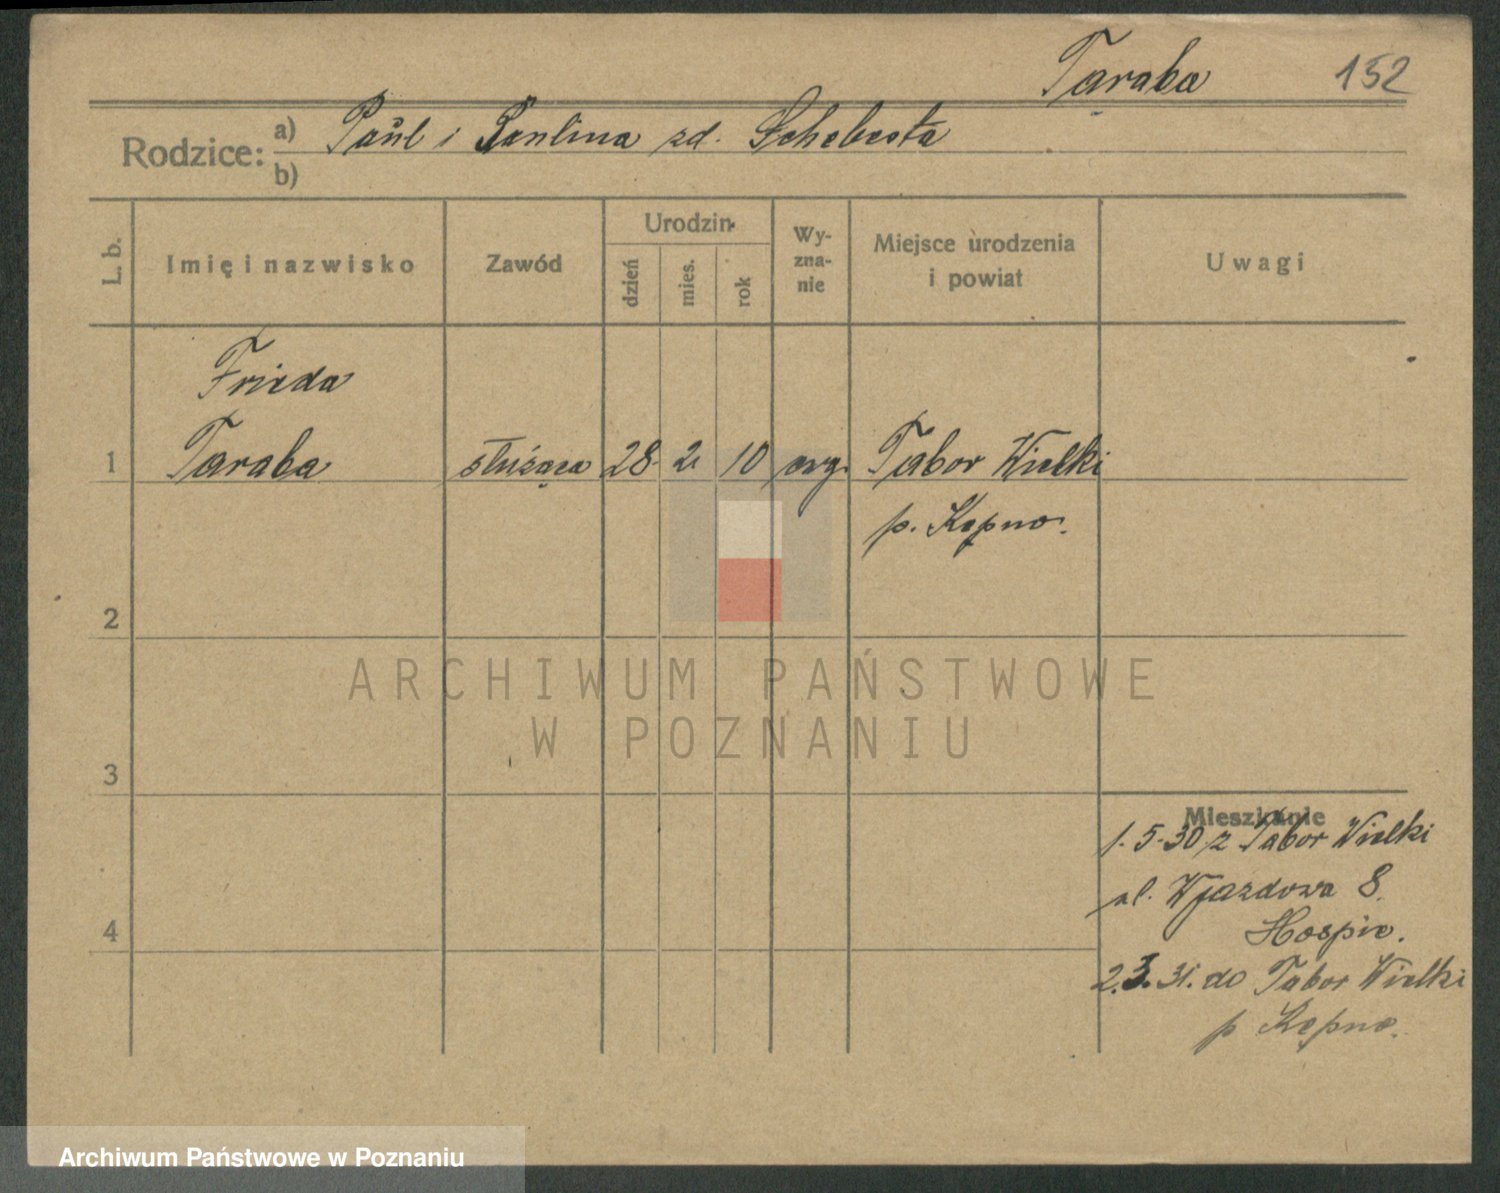 Taraba 152
Rodzice: a) Paul i Paulina zd. Schebesta
b)
L. b.
Imię i nazwisko
Zawód
Urodzin
dzień
mies.
rok
Wy-
zna-
nie
Miejsce urodzenia
i powiat
Uwagi
Frieda
1 Taraba służąca 28. 2. 10 ewg. Tabor Wielki
p. Kępno.
2
ARCHIWUM PAŃSTWOWE
W POZNANIU
3
Mieszkanie
1.5.30 z Tabor Wielki
ul. Wjazdowa 8.
Hospic.
4
2.3.31. do Tabor Wielki
p Kępno.
Archiwum Państwowe w Poznaniu